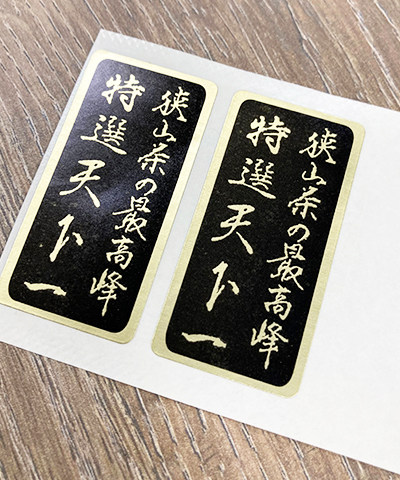 狭山茶の最高峰
特選天下一
狭山茶の最高峰
特選天下一